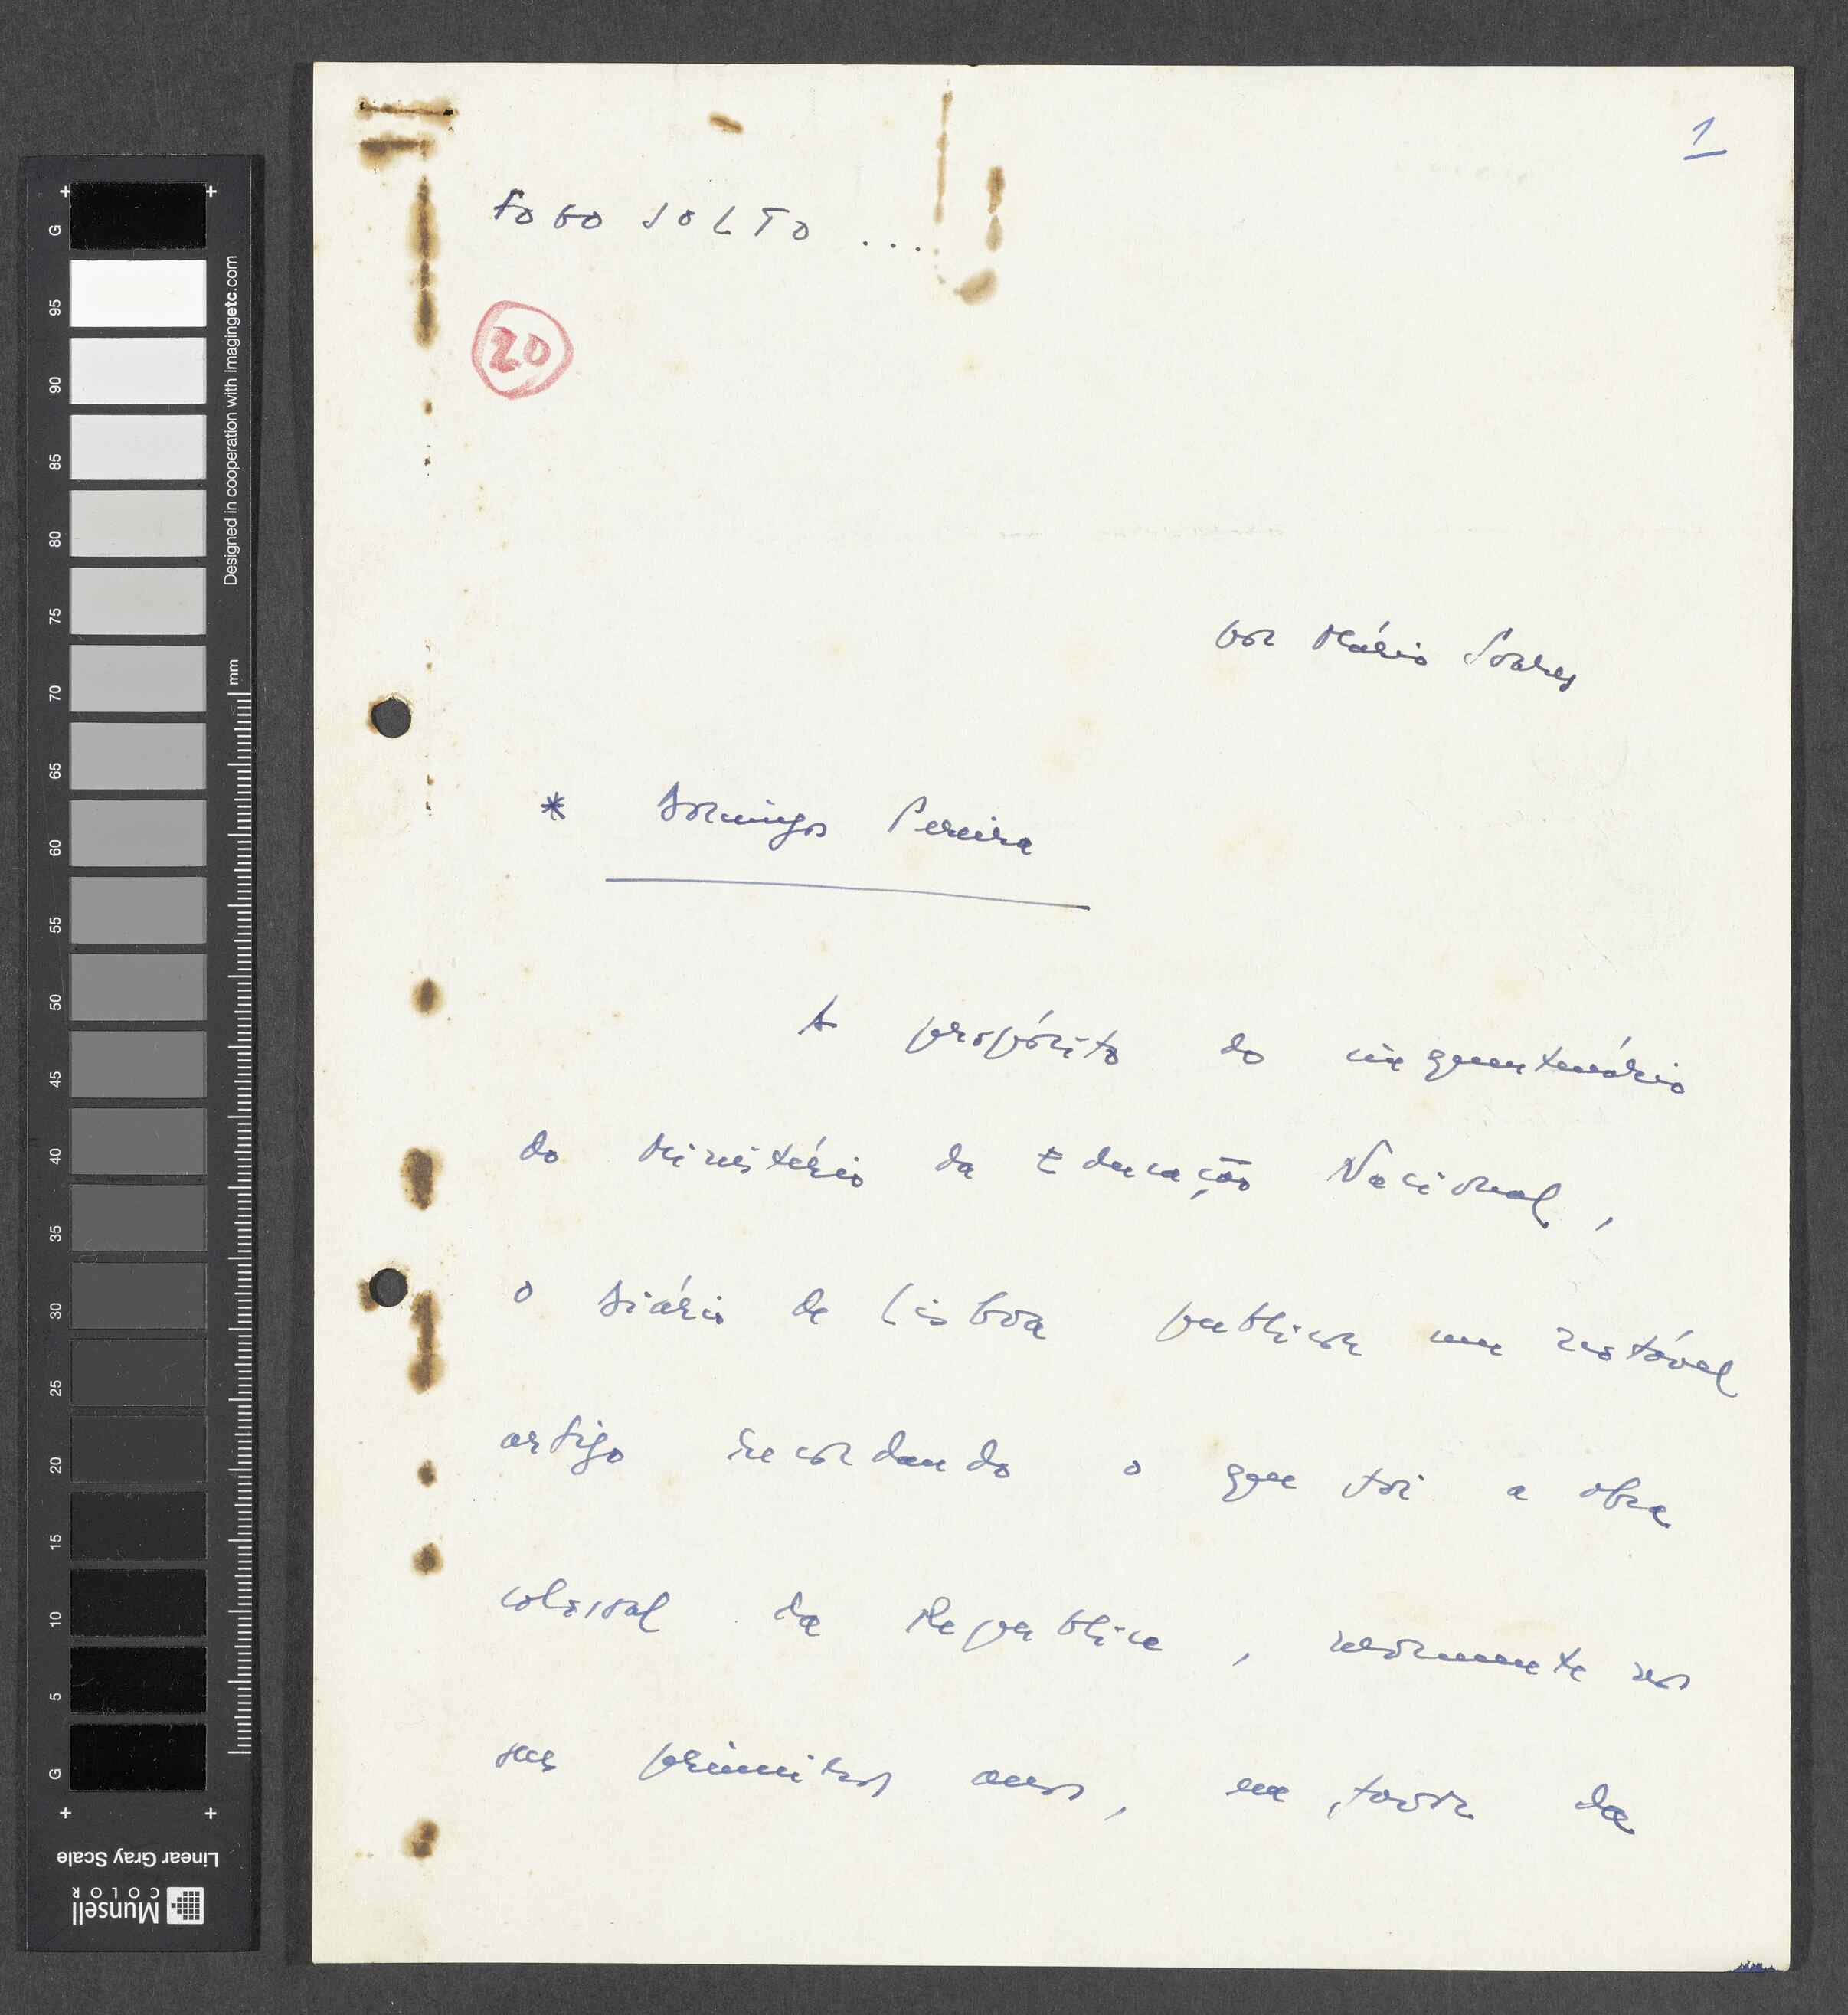 1
FOGO SOLTO ...
20
por Mário Soares
* Domingos Pereira
A propósito do cinquentenário
do Ministério da Educação Nacional,
o Diário de Lisboa publicou um notável
artigo recordando o que foi a obra
colossal da República, mormente nos
seus primeiros anos, em favor da
G
95
90
85
80
75
70
65
60
55
50
45
40
35
30
25
20
15
10
5
G
mm
Designed in cooperation with imagingetc.com
Linear Gray Scale
Munsell
COLOR